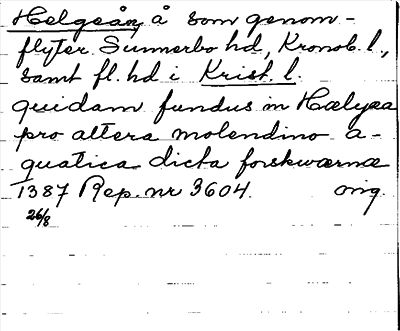 Helgeån, å som genom-
flyter Sunnerbo hd, Kronob. l.,
samt fl. hd i Krist. l.
quidam fundus in Hælyæa
pro altera molendino a-
quatica dicta forskwærnæ
1387 Rep. nr 3604. orig.
26/8